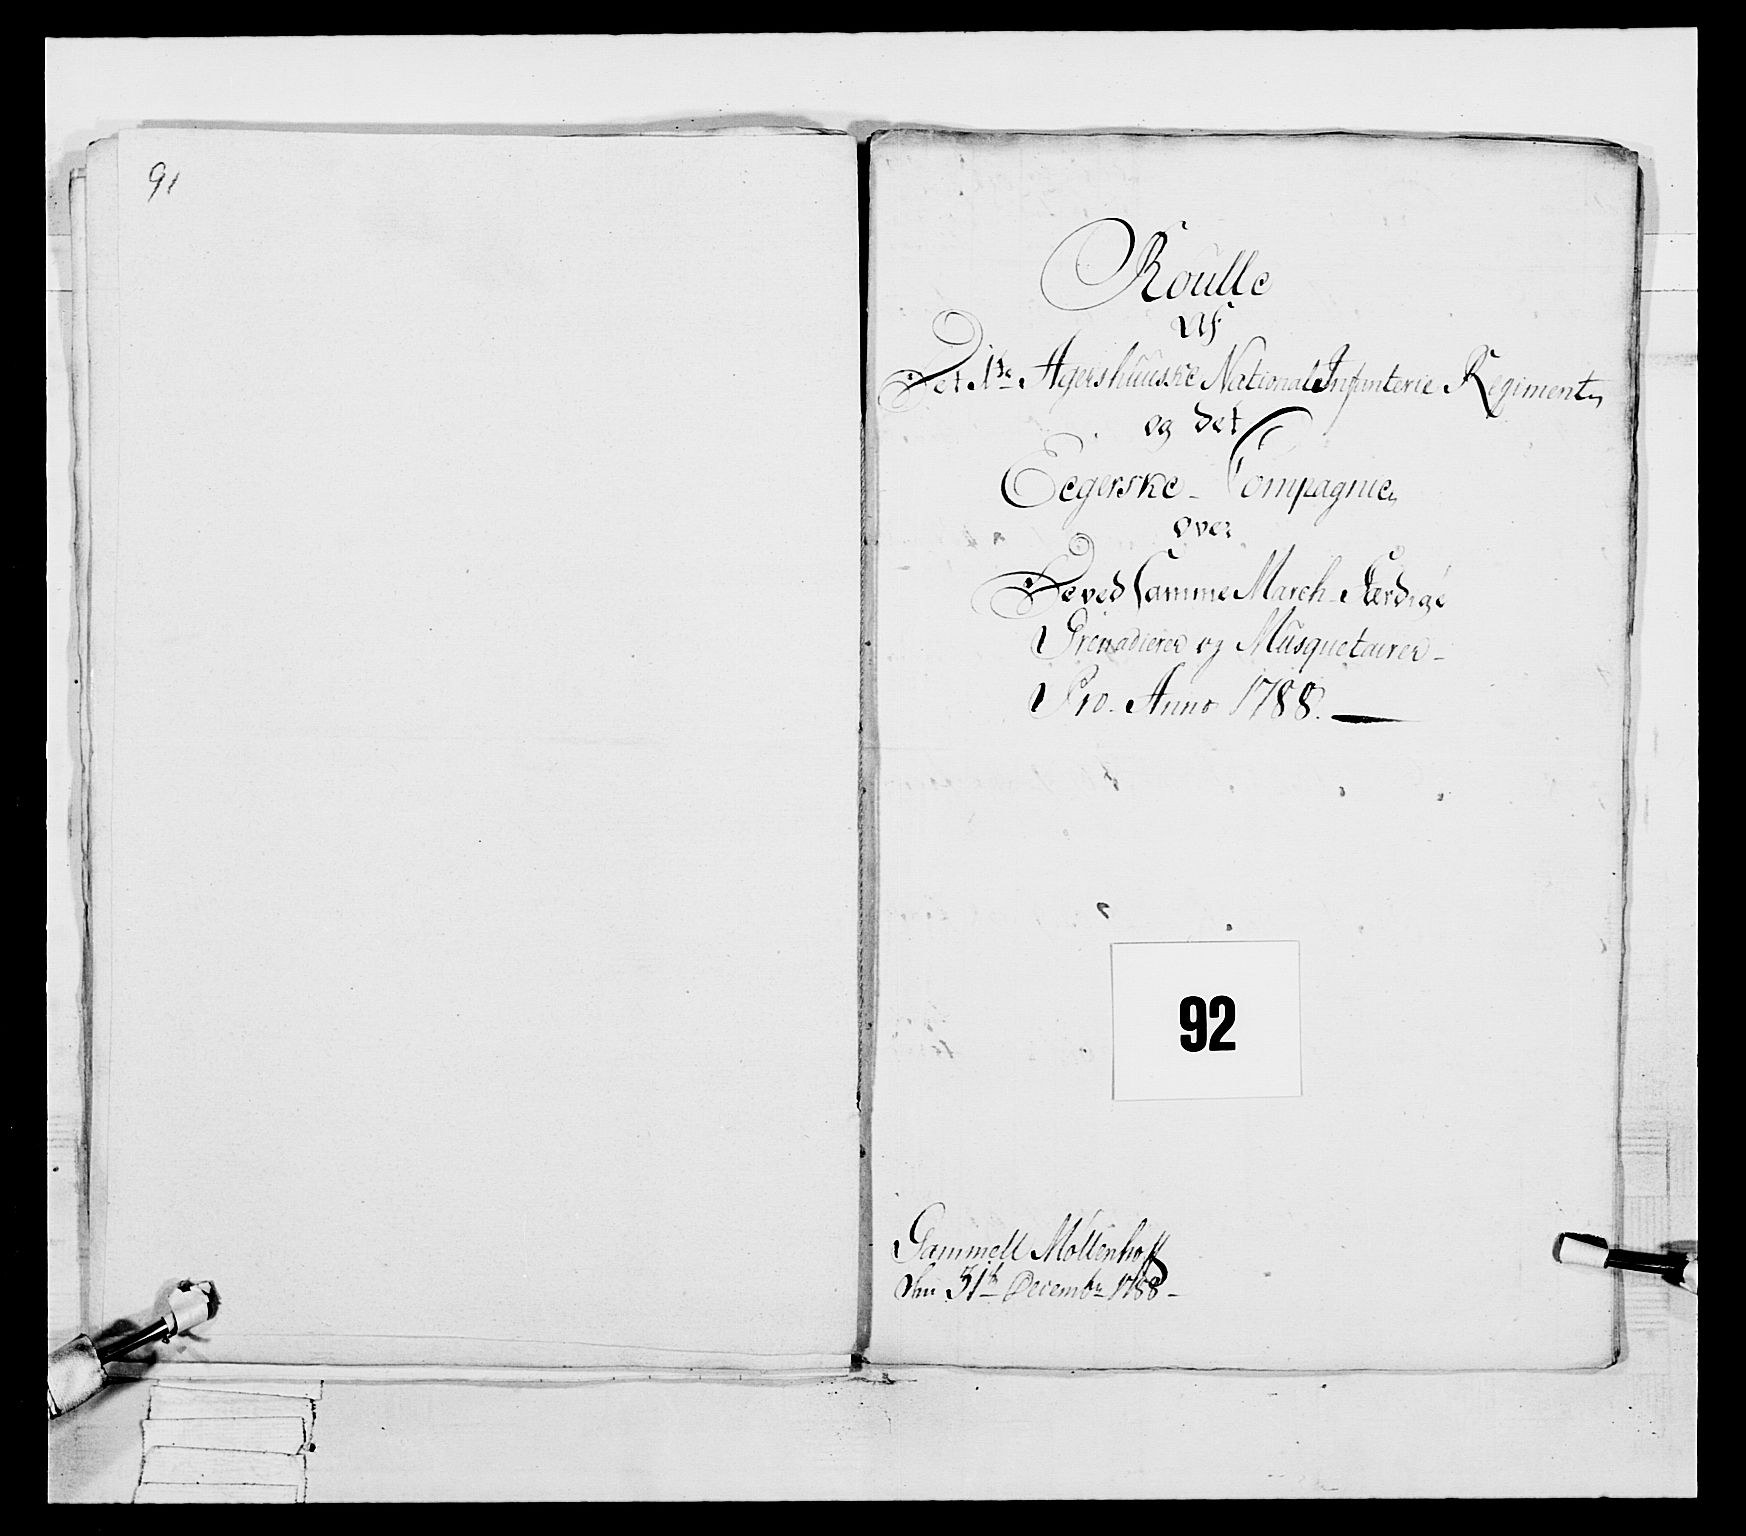 91
Roulle
Af
Det 1ste Agershuuske National Infanterie Regiment,
og det
Eegerske - Compagnie,
over
De ved Samme March - Færdige
Grenadierer og Musquetairer -
Pro. Anno 1788.
92
Gammell Møllenhoff
den 31te Decembr 1788 -